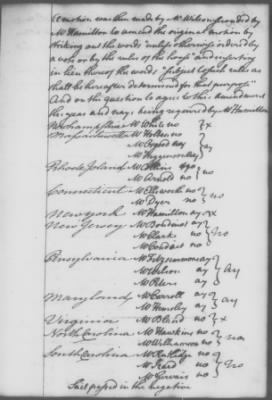 A motion was then made by Mr Wilson seconded by
Mr Hamilton to amend the original motion by
striking out the words "unless otherwise ordered by
a vote or by the rules of the house" and inserting
in lieu thereof the words "subject to such rules as
shall be hereafter determined for that purpose"
And on the question to agree to this Amendment
the yeas and nays being required by Mr Hamilton
Newhampshire Mr White no } x
Massachusetts Mr Holten no
Mr Osgood ay
Mr Higginson ay
Rhode Island Mr Collins no } no
Mr Arnold no
Connecticut Mr Ellsworth no
Mr Dyer no } no
New York Mr Hamilton ay } x
New Jersey Mr Boudinot ay
Mr Clarke no } no
Mr Condict no
Pensylvania Mr Fitzsimmons ay
Mr Wilson ay } ay
Mr Peters ay
Maryland Mr Carroll ay
Mr Hemsley ay } ay
Virginia Mr Bland no } x
North Carolina Mr Hawkins no
Mr Williamson no } no
South Carolina Mr Rutledge no
Mr Izard no } no
Mr Gervais no
So it passed in the negative